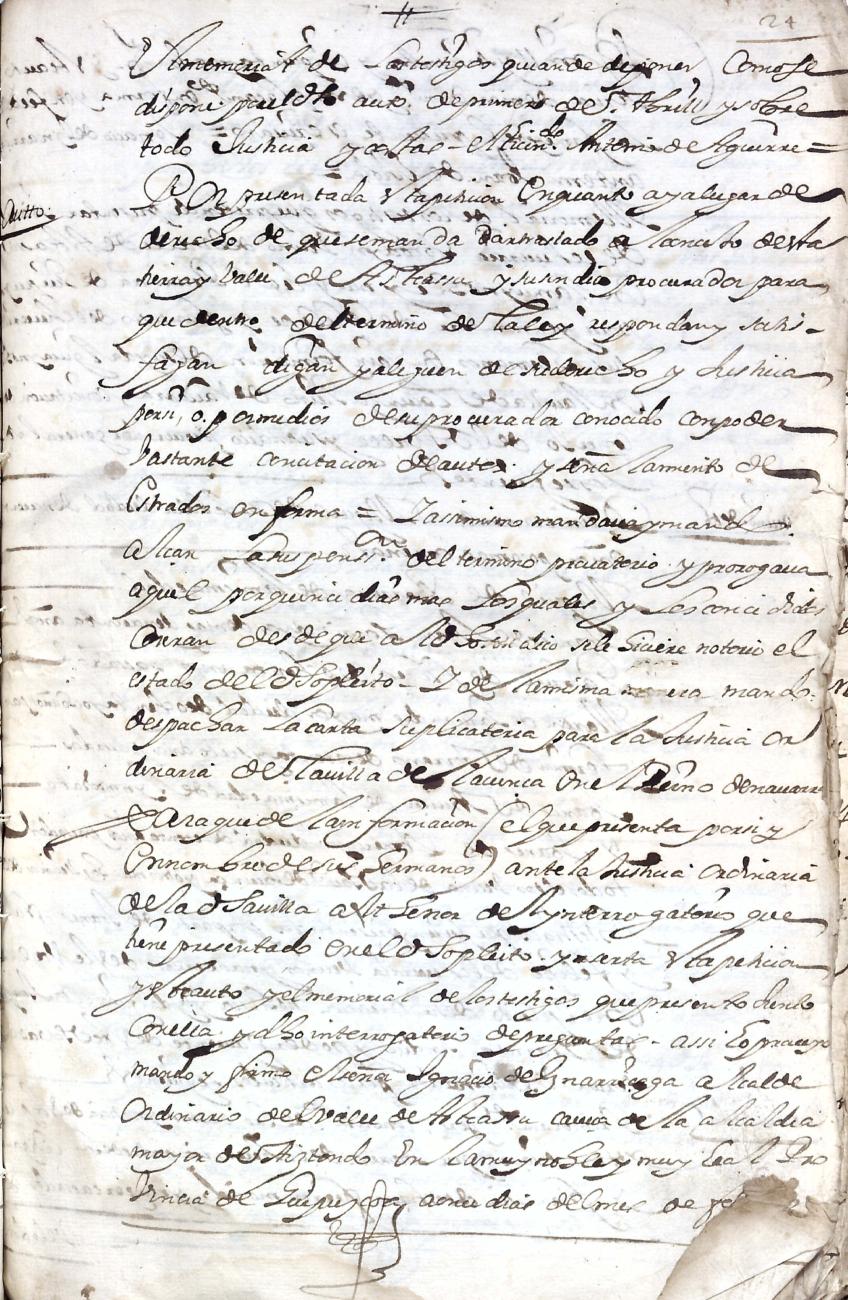 24
El memorial de los testigos que ande deponer Como se
dispone por el dho auto de primero de Abrill y sobre
todo Justicia y costas - el Licendo Antonio de Aguirre =
Autto.
Por presentada esta peticion En quanto a ya lugar de
derecho de que se manda dar traslado a la
tierra y Valle de procurador para
que dentro del termino de la ley respondan y satis-
fagan digan y aleguen de su derecho y Justicia
por si, o por medios de su procurador conocido con poder
bastante con citacion de autos y señalamiento de
Estrados en forma = Y assimismo mandava y mando
del termino provatorio y prorogava
aquel por quince dias mas los quales y
corran desde que al dho se le hiciere notorio el
estado del dho pleito - Y de la misma manera mando
despachar la carta suplicatoria para la Justicia or
dinaria de la villa de en el Reino de navarra
Para que de la informacion (el que presenta por si y
En nombre de sus hermanos) ante la Justicia ordinaria
de la dha villa al tenor del Ynterrogatorio que
tiene presentado en el dho pleito y esta peticion
y este auto y el memorial de los testigos que presento
con ella y dho interrogatorio de preguntas - assi lo proveyo
mando y firmo el señor Ignacio de alcalde
Ordinario del valle de de la alcaldia
mayor de Aiztondo En la muy noble y muy leal Pro
vincia de Guipuzcoa, a dias del mes de